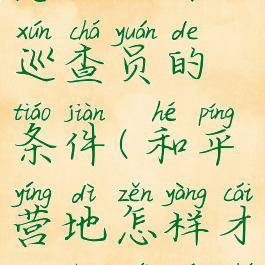 xún chá yuán de
巡查员的
tiáo jiàn hé píng
条件(和平
yíng dì zěn yàng cái
营地怎样才